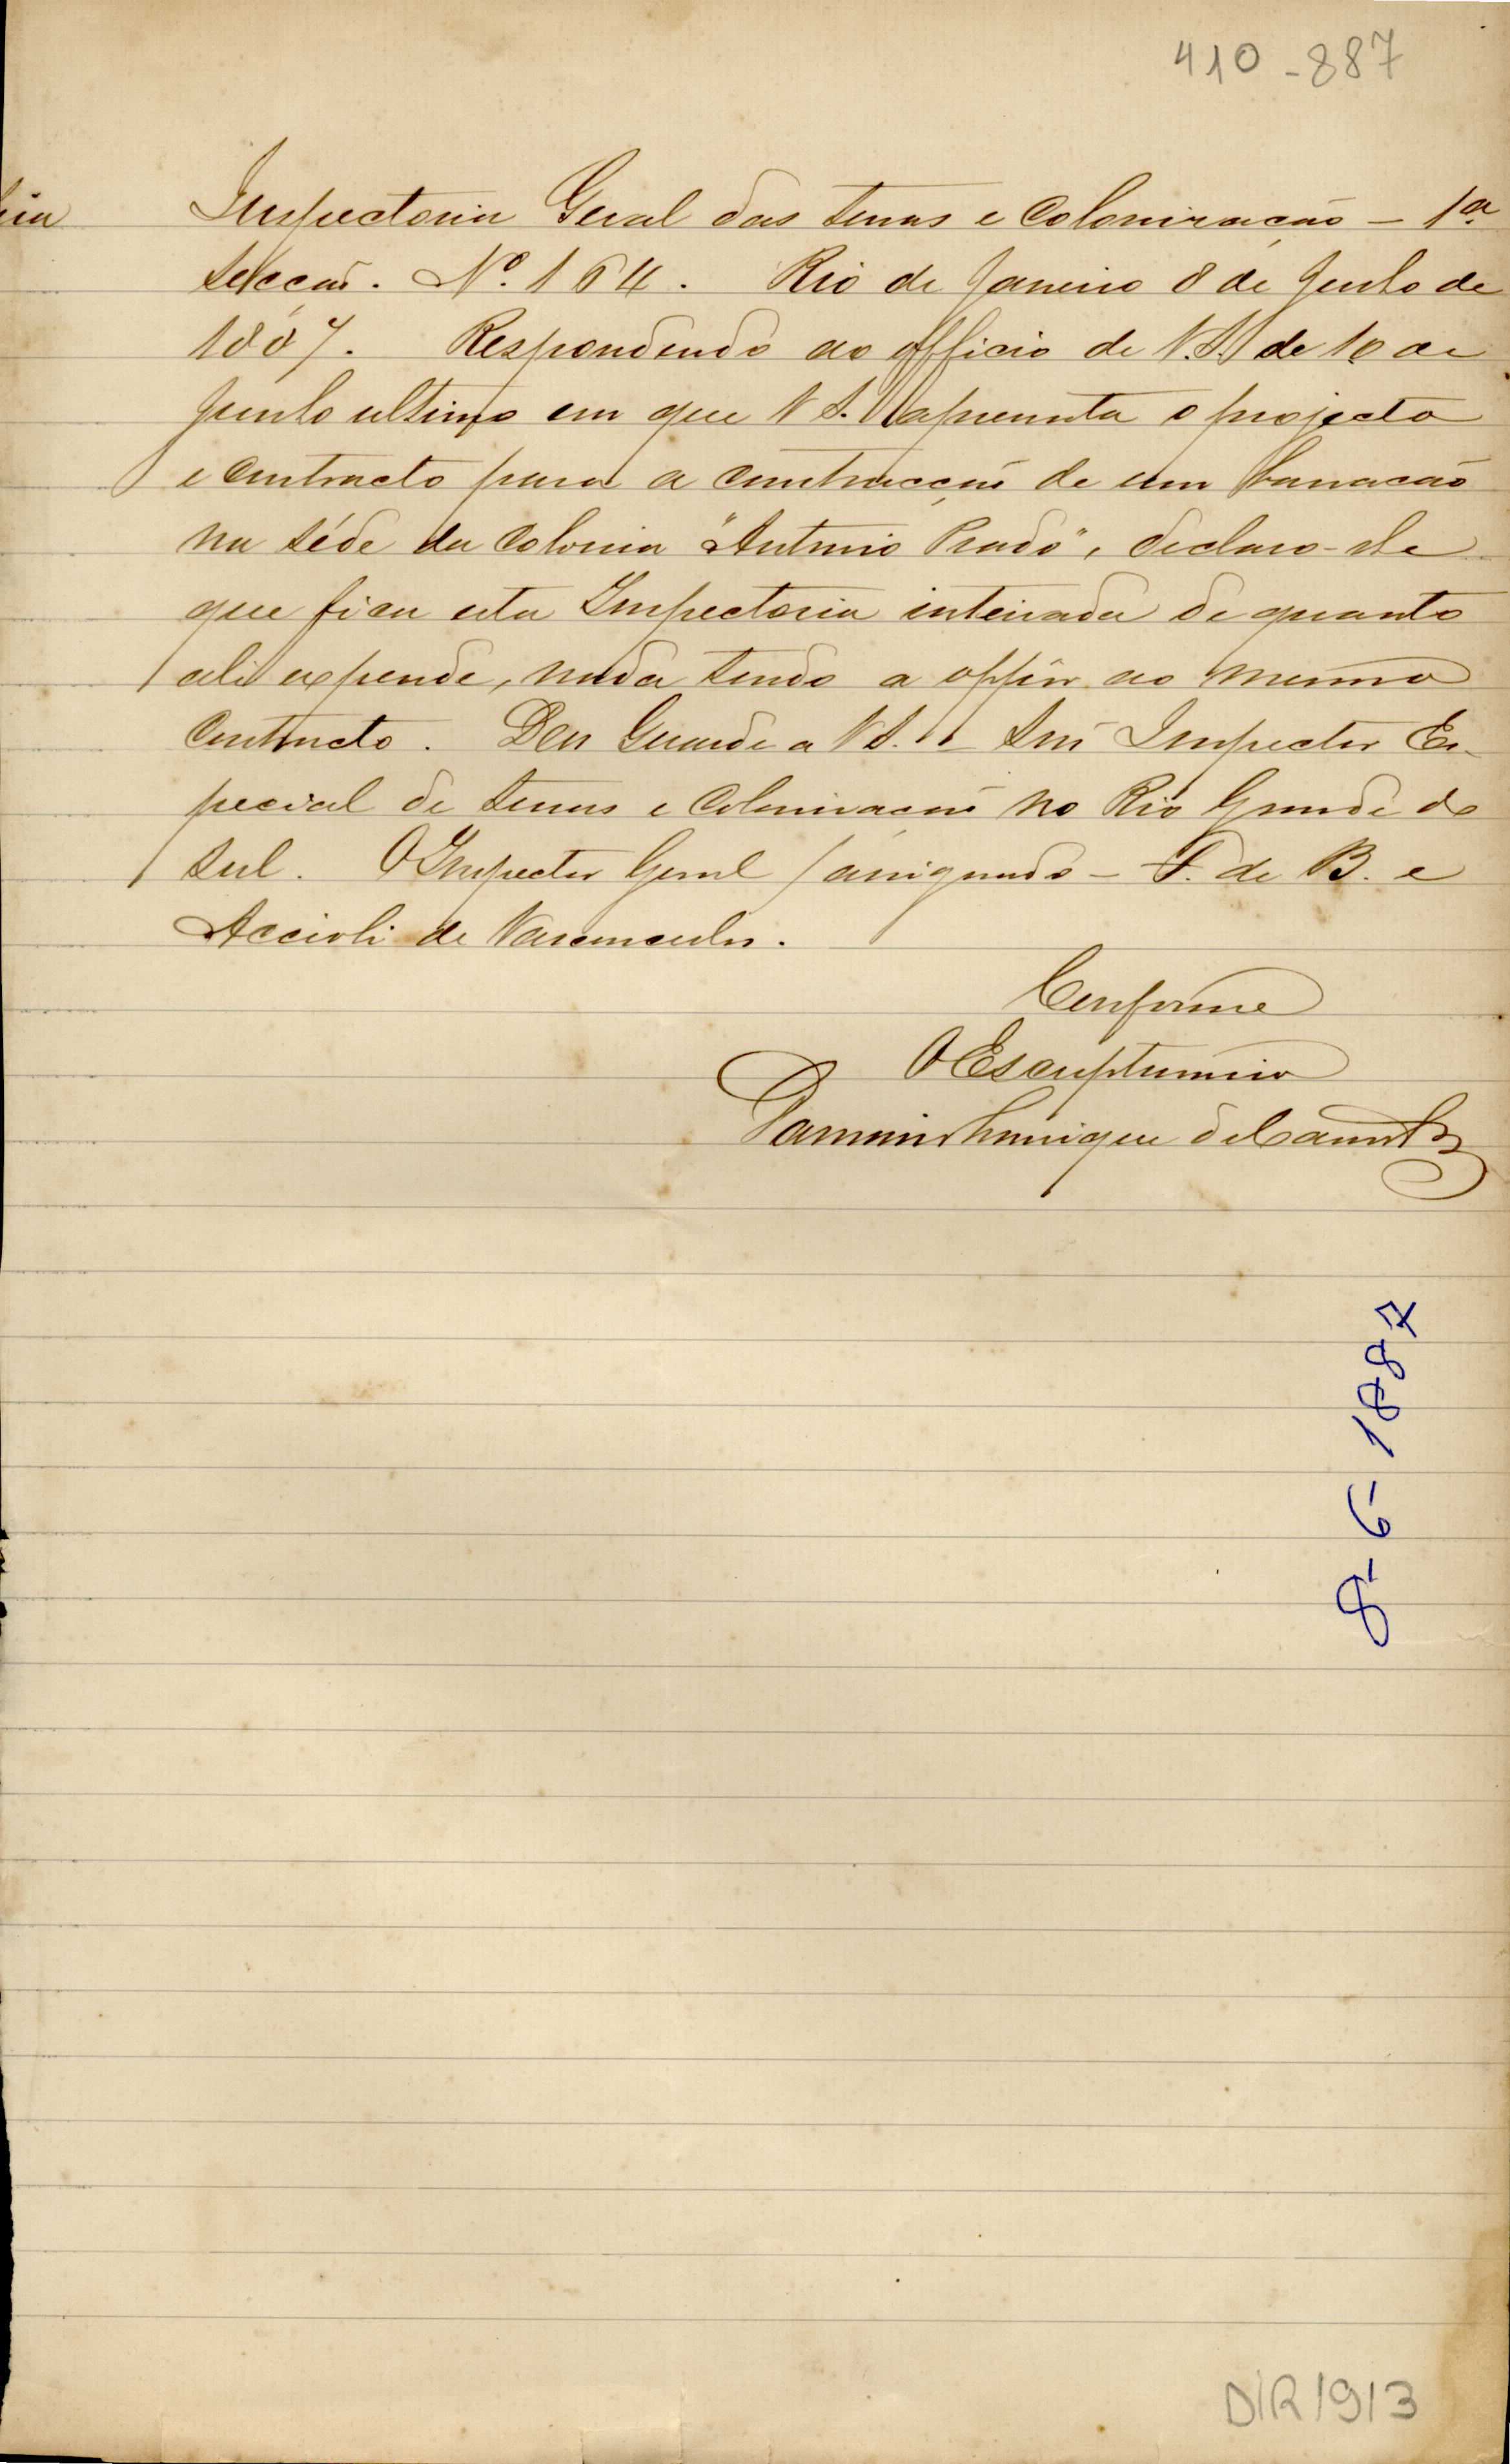 410-887
Inspectoria Geral das terras e Colonização - 1ª
Secção. Nº. 164. Rio de Janeiro 8 de Junho de
1887. Respondendo ao officio de V.S. de 10 de
Junho ultimo em que V.S. apresenta o projecto
e contracto para a construcção de um barracão
na séde da colonia "Antonio Prado", declaro-lhe
que fica esta Inspectoria inteirada de quanto
ali expende, nada tendo a oppôr ao mesmo
contracto. Deus Guarde a V.S. - Snr Inspector Es-
pecial de terras e colonização no Rio Grande do
Sul. O Inspector Geral /assignado - F. de B. e
Accioli de Vasconcellos.
Conforme
O Escripturario
Henrique de
8-6-1887
DIR1913